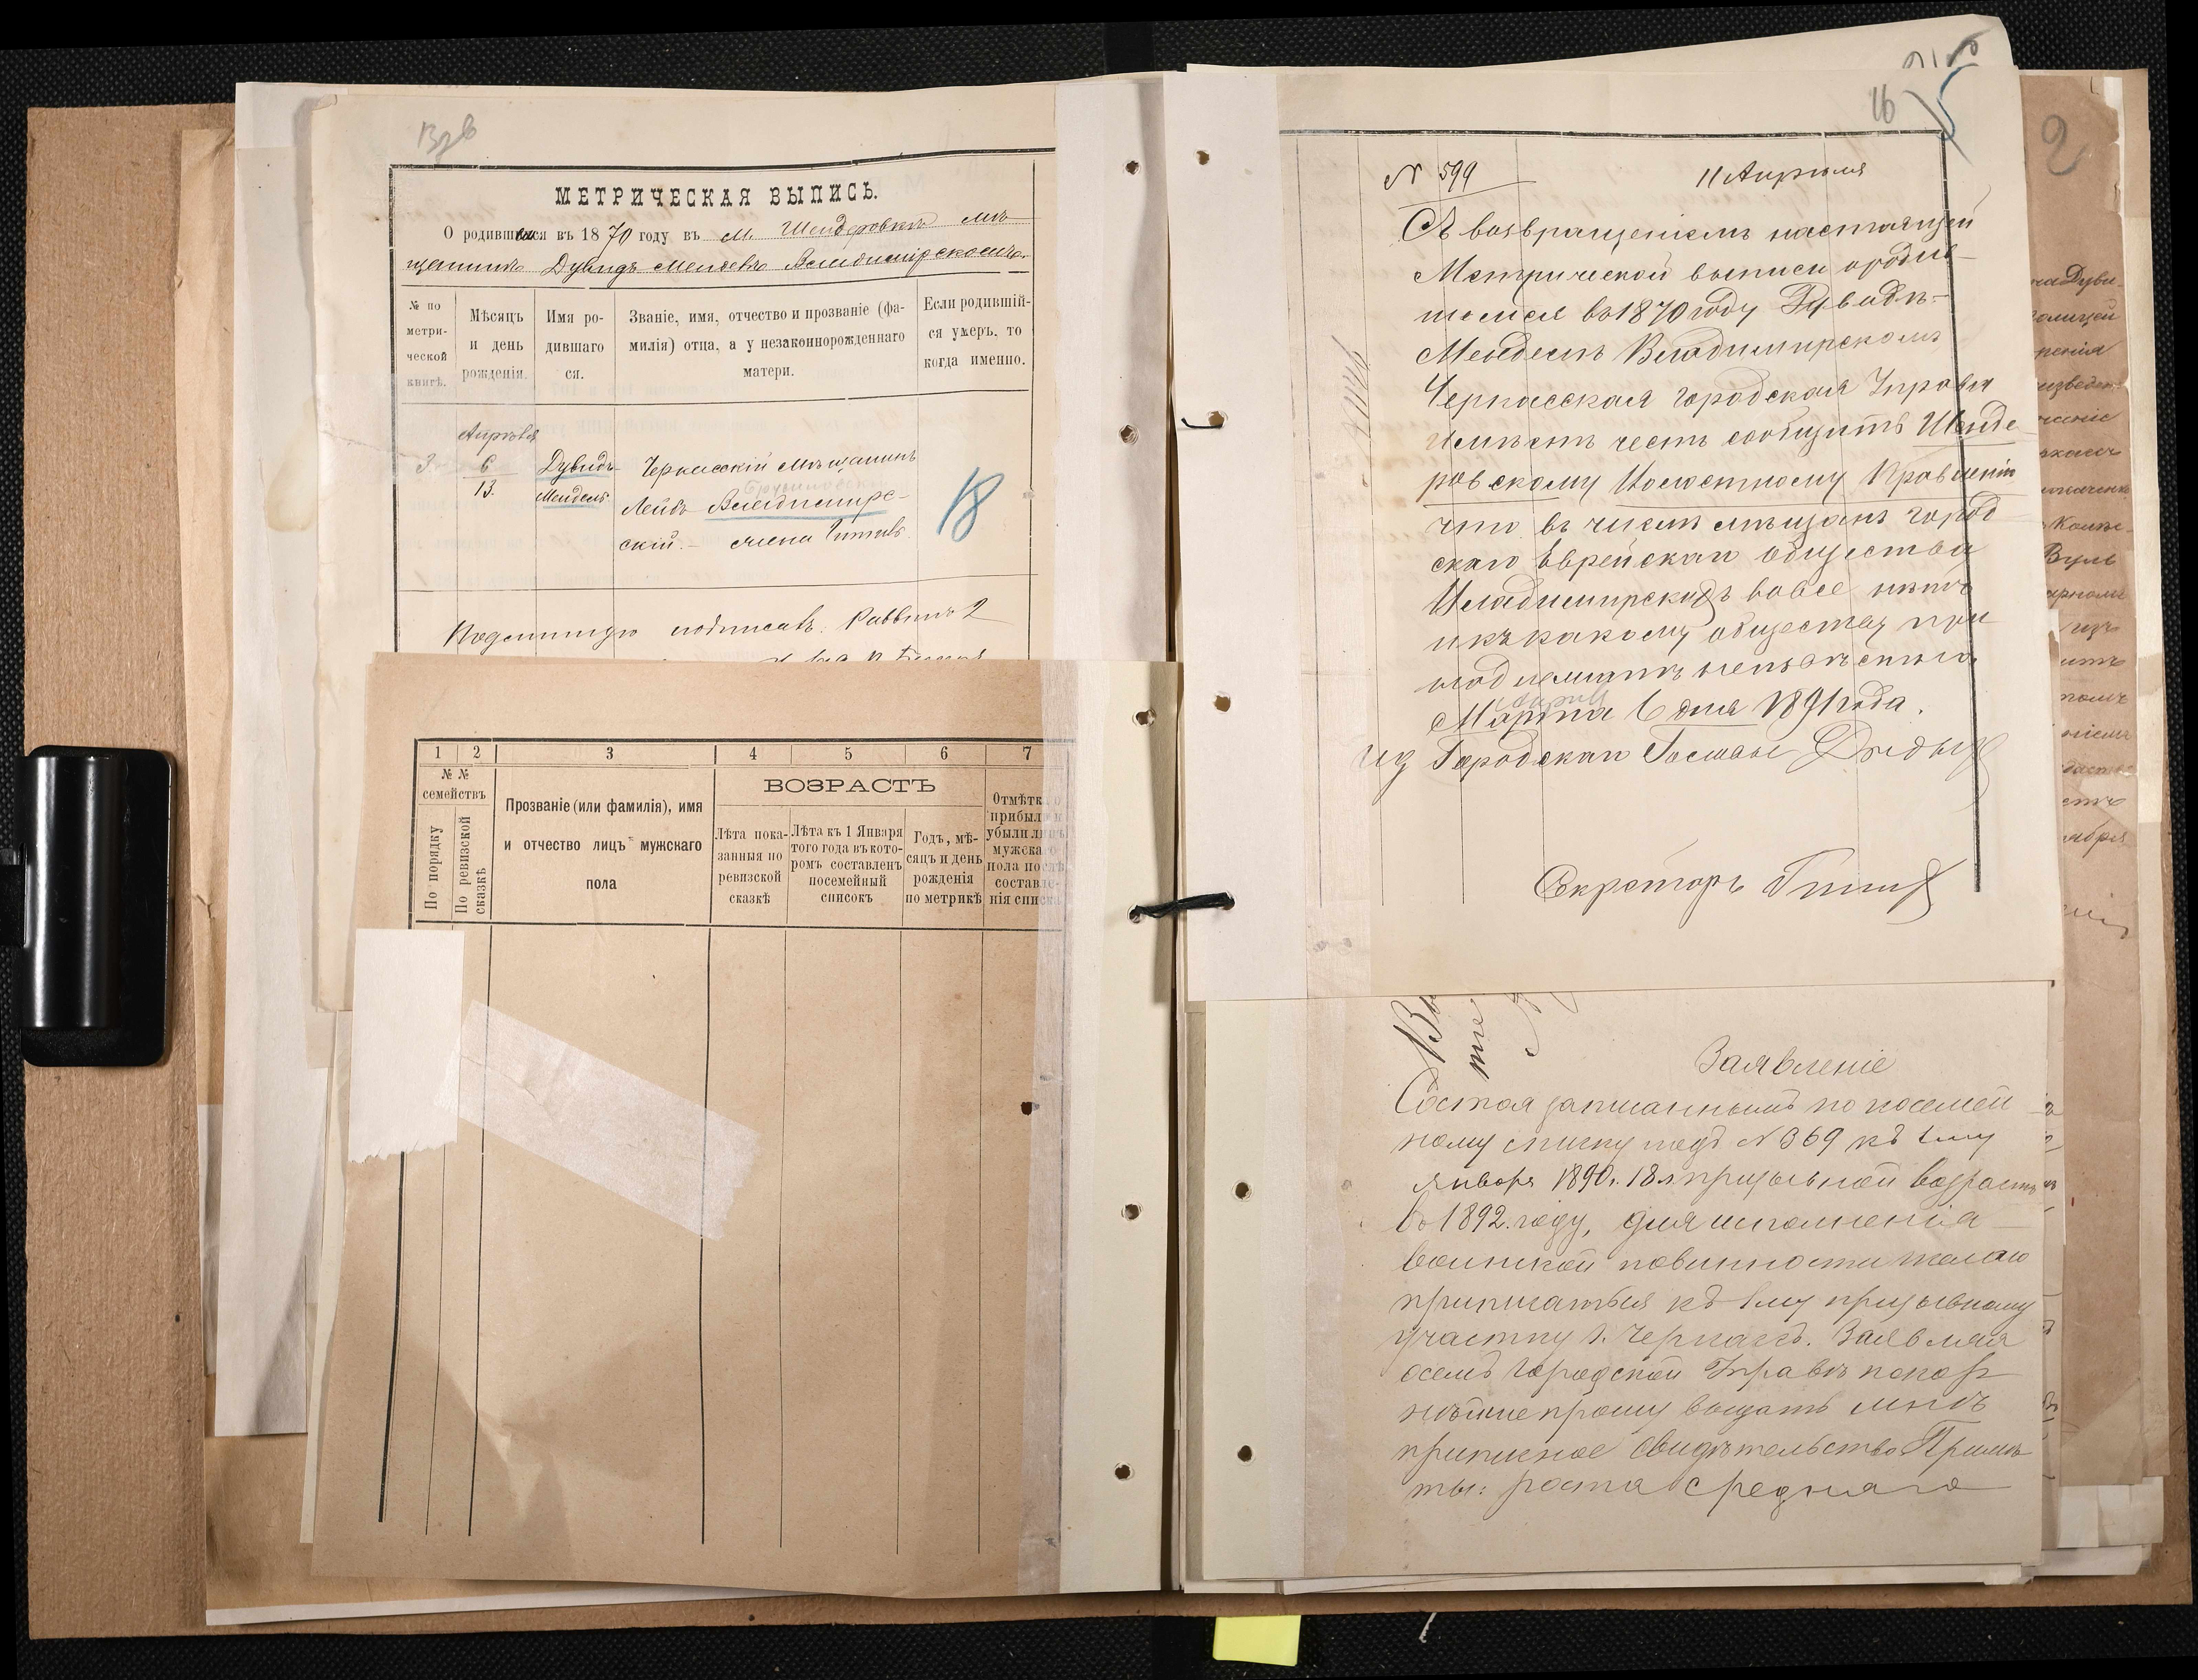 МЕТРИЧЕСКАЯ ВЫПИСЬ.
О родившемся въ 1870 году въ м. Шендеровкѣ мѣ-
щанинѣ Дувидъ Менделѣ Владимірскомъ.
№ по метрической книгѣ.
Мѣсяцъ и день рожденія.
Имя родившагося.
Званіе, имя, отчество и прозваніе (фамилія) отца, а у незаконнорожденнаго матери.
Если родившійся умеръ, то когда именно.
3.
Апрѣля
6
13.
Дувидъ
Мендель
Черкасскій мѣщанинъ
Лейбъ Владимирс-
скій. —
18
подписалъ. Раввинъ
1 2 3 4 5 6 7
№ № семействъ
По порядку
По ревизской сказкѣ
Прозваніе (или фамилія), имя
и отчество лицъ мужскаго
пола
ВОЗРАСТЪ
Лѣта показанныя по ревизской сказкѣ
Лѣта къ 1 Января того года въ которомъ составленъ посемейный списокъ
Годъ, мѣсяцъ и день рожденія по метрикѣ
16
5
2
N 599 11 Апрѣля
Съ возвращеніемъ настоящей
Метрической выписи о родив-
шемся въ 1870 году Дувидъ-
Менделѣ Владимирскомъ
Черкасская Городская Управа
имѣетъ честь сообщить Шенде
ровскому Волостному Правленію
что въ числѣ мѣщанъ город
скаго Еврейскаго общества
Владимирскихъ вовсе нѣтъ
и къ какому обществу при
надлежитъ неизвѣстно.
Марта 6 дня 1891 года.
Секретарь
Заявленіе
Состоя записаннымъ по посемей
ному списку подъ N 369 къ 1му
Января 1890. 18 л призывной возрастъ
въ 1892. году, для исполненія
воинской повинности желаю
приписаться къ 1му призывному
участку г. Черкасъ. Заявляя
о семъ Городской Управѣ покор
нѣйше прошу выдать мнѣ
приписное свидѣтельство Примѣ
ты: роста средняго